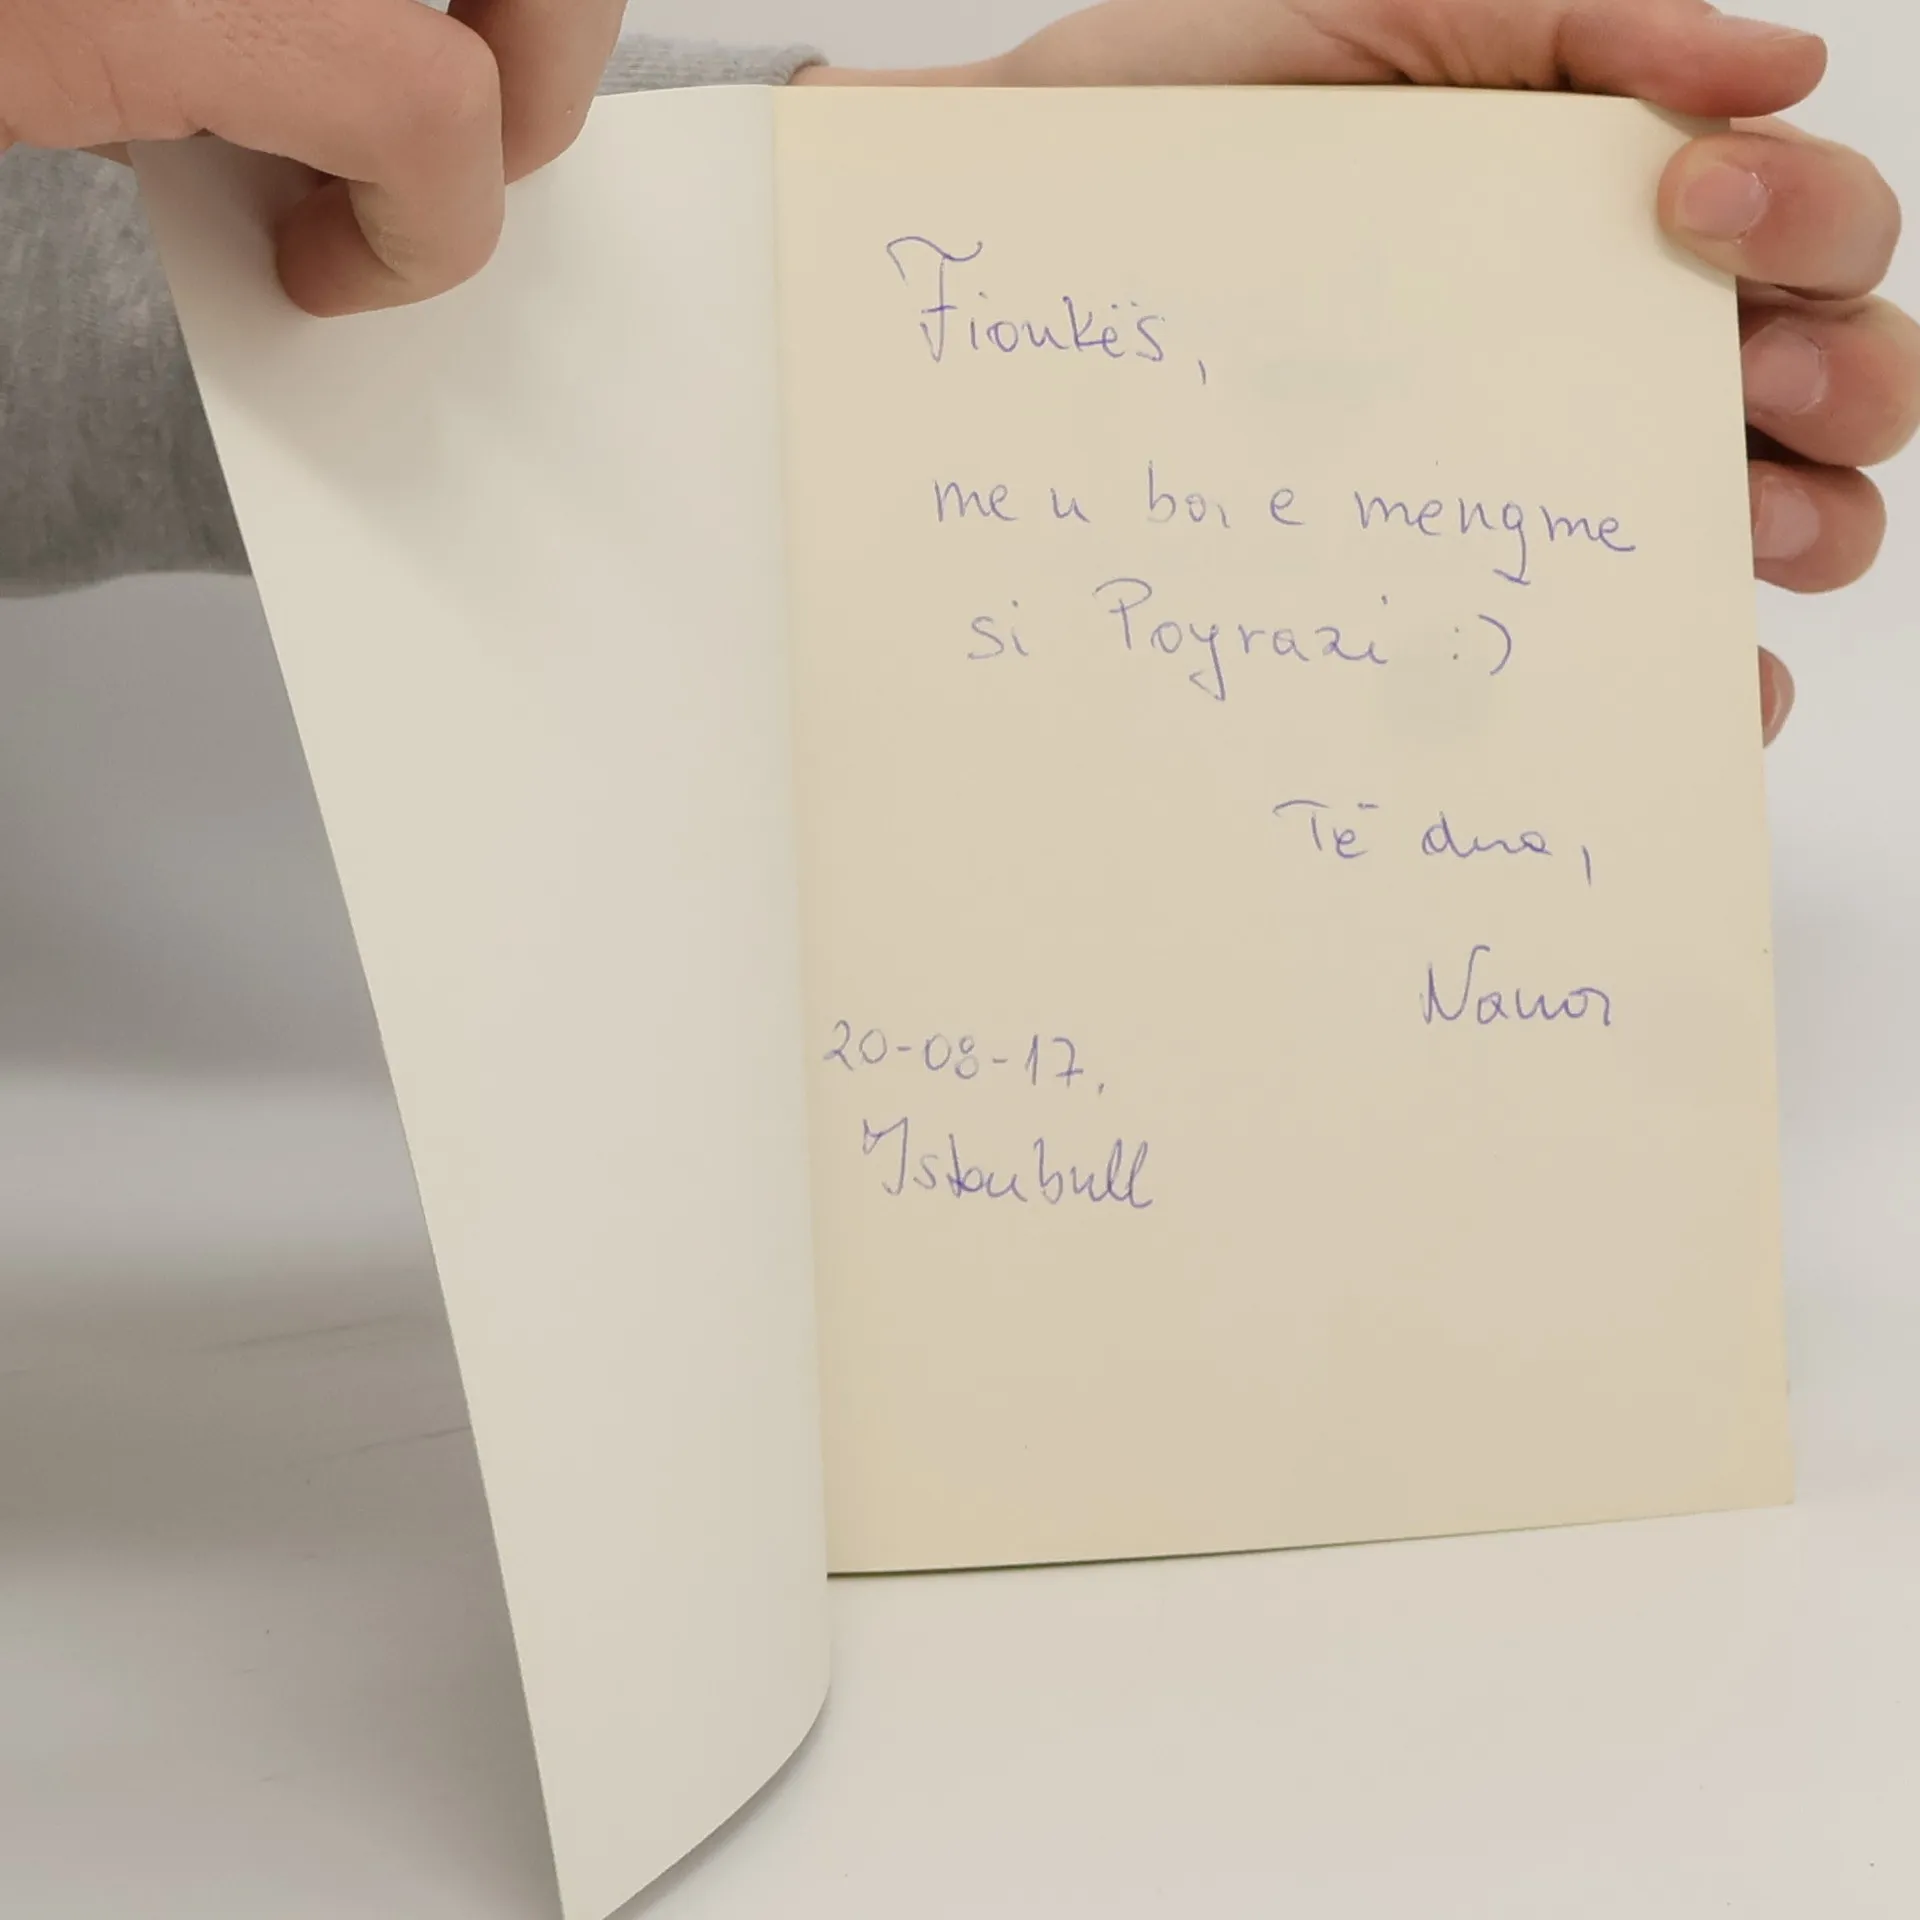 Fionkës,
me u bo e mençme
si Poyrazi :)
Të dua,
Nana
20-08-17,
Istanbull